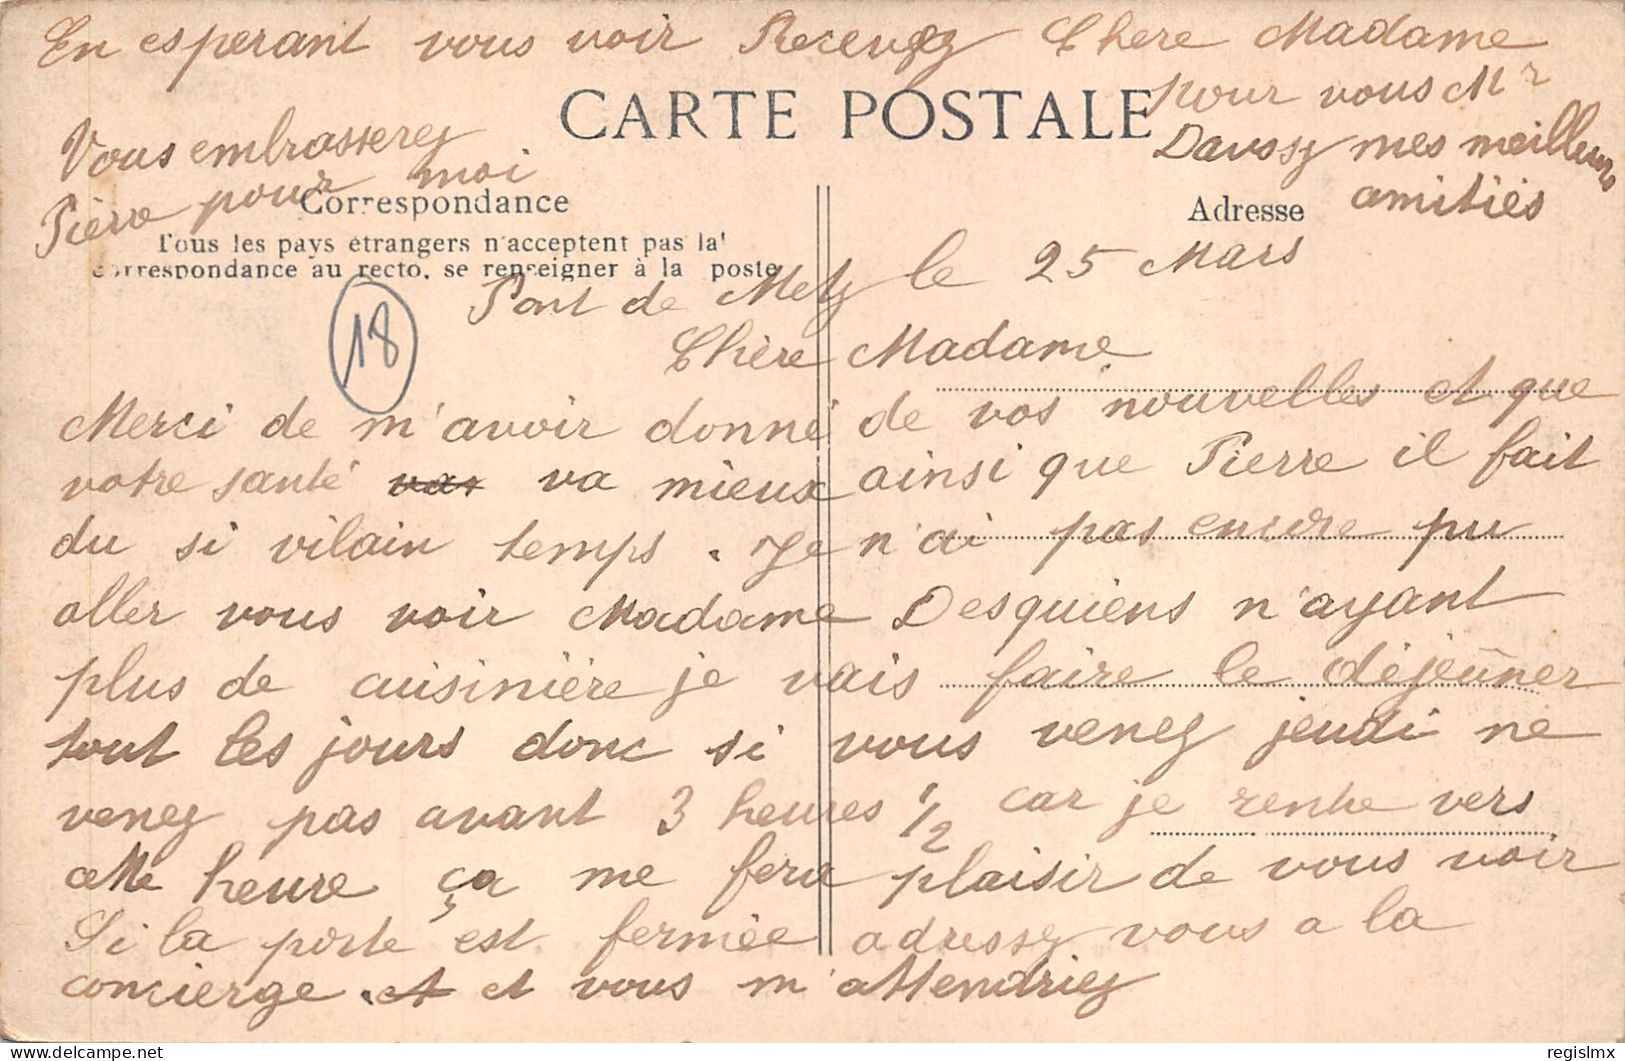 En esperant vous voir Recevez Chere Madame
pour vous Mr
Daussy mes meilleurs
amitiés
Vous embrasserez
Pierre pour moi
CARTE POSTALE
Correspondance
Tous les pays étrangers n'acceptent pas la
correspondance au recto, se renseigner à la poste
Adresse
Pont de Metz le 25 Mars
18
Chère Madame
Merci de m'avoir donné de vos nouvelles et que
votre santé va mieux ainsi que Pierre il fait
du si vilain temps. Je n'ai pas encore pu
aller vous voir Madame Desquiens n'ayant
plus de cuisinière je vais faire le déjeûner
tout les jours donc si vous venez jeudi ne
venez pas avant 3 heures 1/2 car je rentre vers
cette heure ça me fera plaisir de vous voir
Si la porte est fermée adressez vous a la
concierge. et et vous m'attendriez
regislmx